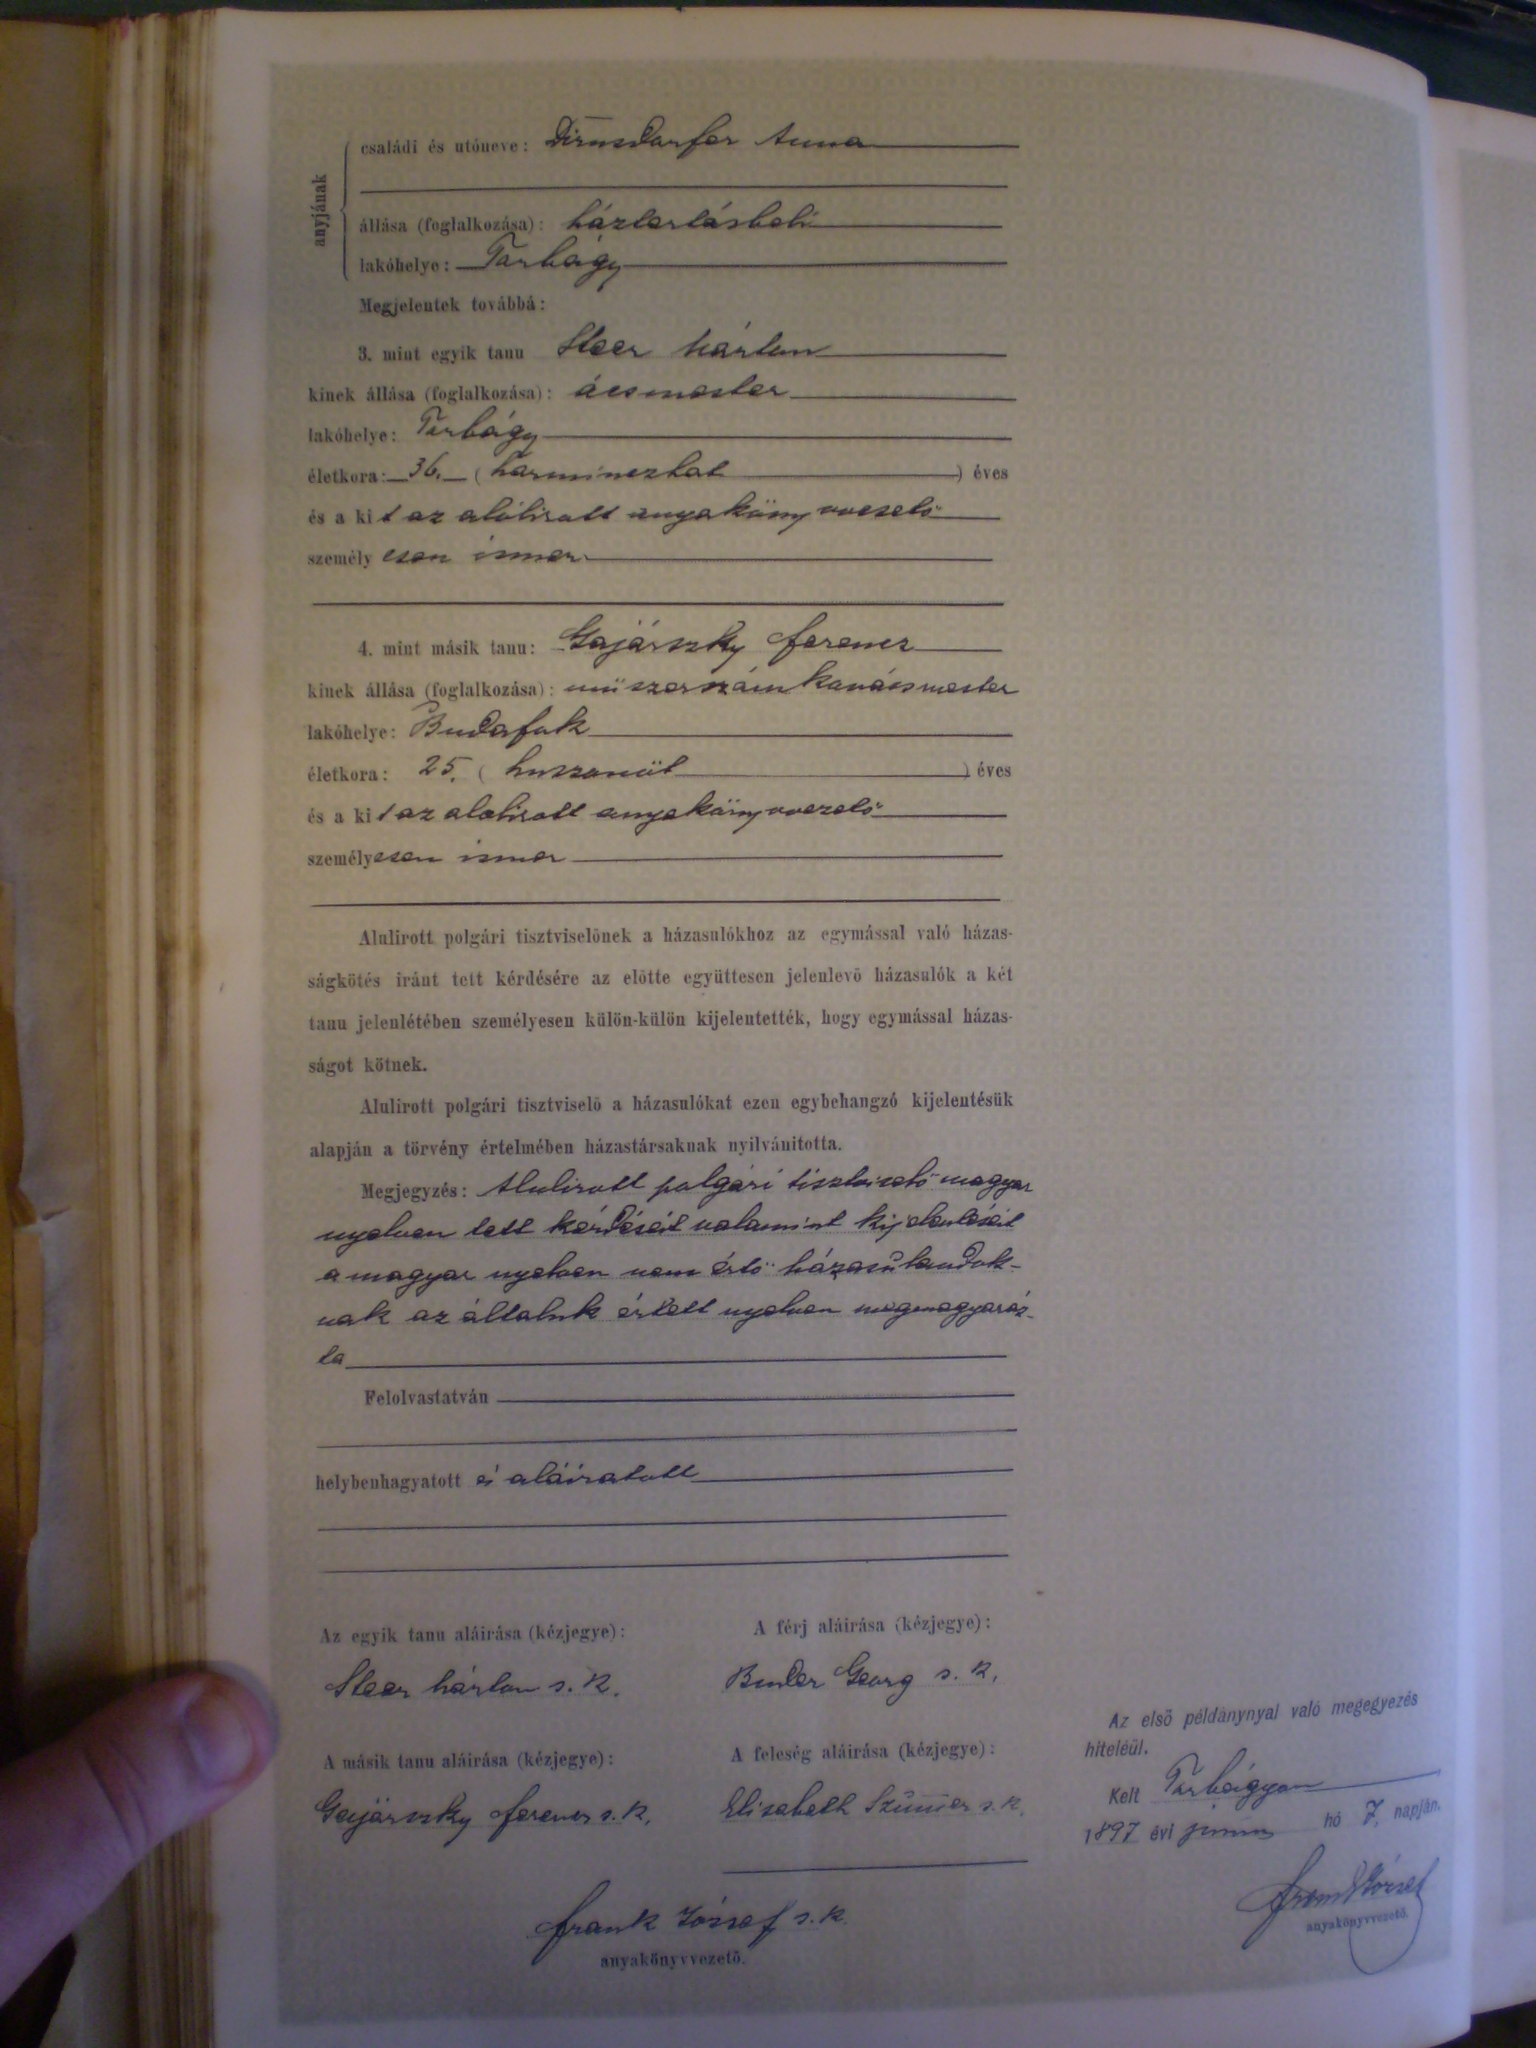 anyjának
családi és utóneve: Dirnsdorfer Anna
állása (foglalkozása): háztartásbeli
lakóhelye: Torbágy
Megjelentek továbbá:
3. mint egyik tanu Steer Márton
kinek állása (foglalkozása): ácsmester
lakóhelye: Torbágy
életkora: 36. (harminczhat) éves
és a kit az alólirott anyakönyvvezető
személyesen ismer
4. mint másik tanu: Gajárszky Ferencz
kinek állása (foglalkozása): műszerszám kovácsmester
lakóhelye: Budafok
életkora: 25. (huszonöt) éves
és a kit az alolirott anyakönyvvezető
személyesen ismer
Alulirott polgári tisztviselőnek a házasulókhoz az egymással való házas-
ságkötés iránt tett kérdésére az előtte együttesen jelenlevő házasulók a két
tanu jelenlétében személyesen külön-külön kijelentették, hogy egymással házas-
ságot kötnek.
Alulirott polgári tisztviselő a házasulókat ezen egybehangzó kijelentésük
alapján a törvény értelmében házastársaknak nyilvánitotta.
Megjegyzés: Alulirott polgári tisztviselő magyar
nyelven tett kérdéseit valamint kijelentéseit
a magyar nyelven nem értő házasulandók-
nak az általuk értett nyelven megmagyaráz-
ta
Felolvastatván
helybenhagyatott és aláiratott
Az egyik tanu aláirása (kézjegye): A férj aláirása (kézjegye):
Steer Márton s. k. Binder Georg s. k.
A másik tanu aláirása (kézjegye): A feleség aláirása (kézjegye):
Gajárszky Ferencz s. k. Elisabeth Szimmer s. k.
Frank József s. k.
anyakönyvvezető.
Az első példánynyal való megegyezés
hiteléül.
Kelt Torbágyon
1897 évi junius hó 7. napján.
Frank József
anyakönyvvezető.